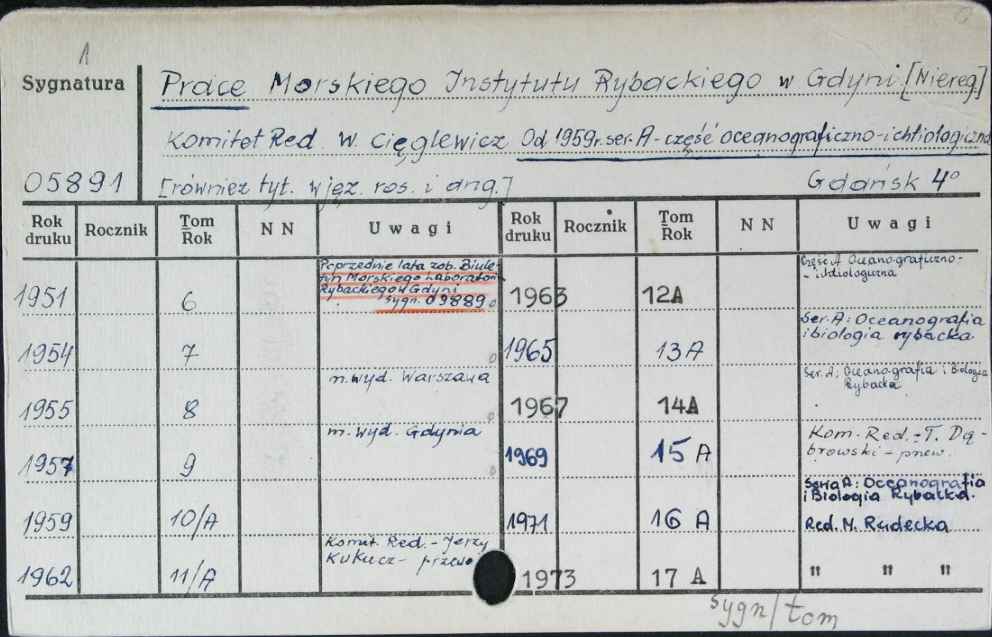 1
Sygnatura Prace Morskiego Instytutu Rybackiego w Gdyni [Niereg.]
Komitet Red. W. Cięglewicz Od 1959r. ser. A - część oceanograficzno-ichtiologiczna
05891 [również tyt. w jęz. ros. i ang.] Gdańsk 4°
Rok druku Rocznik Tom Rok N N Uwagi Rok druku Rocznik Tom Rok N N Uwagi
Poprzednie lata zob. Biule-
tyn Morskiego Laboratori
Rybackiego w Gdyni
sygn. 09889
1951 6
1963 12A Część A Oceanograficzno-
-ichtiologiczna
1954 7
1965 13A Ser. A: Oceanografia
i biologia rybacka
1955 8 m. wyd. Warszawa
1967 14A Ser. A: Oceanografia i Biologia
Rybacka
1957 9 m. wyd. Gdynia
1969 15 A Kom. Red. - T. Dą-
browski - przew.
1959 10/A
1971 16 A Seria A: Oceanografia
i Biologia Rybacka.
Red. M. Rudecka
1962 11/A Komit. Red. - Jerzy
Kukucz - przewo
1973 17 A " " "
sygn/tom